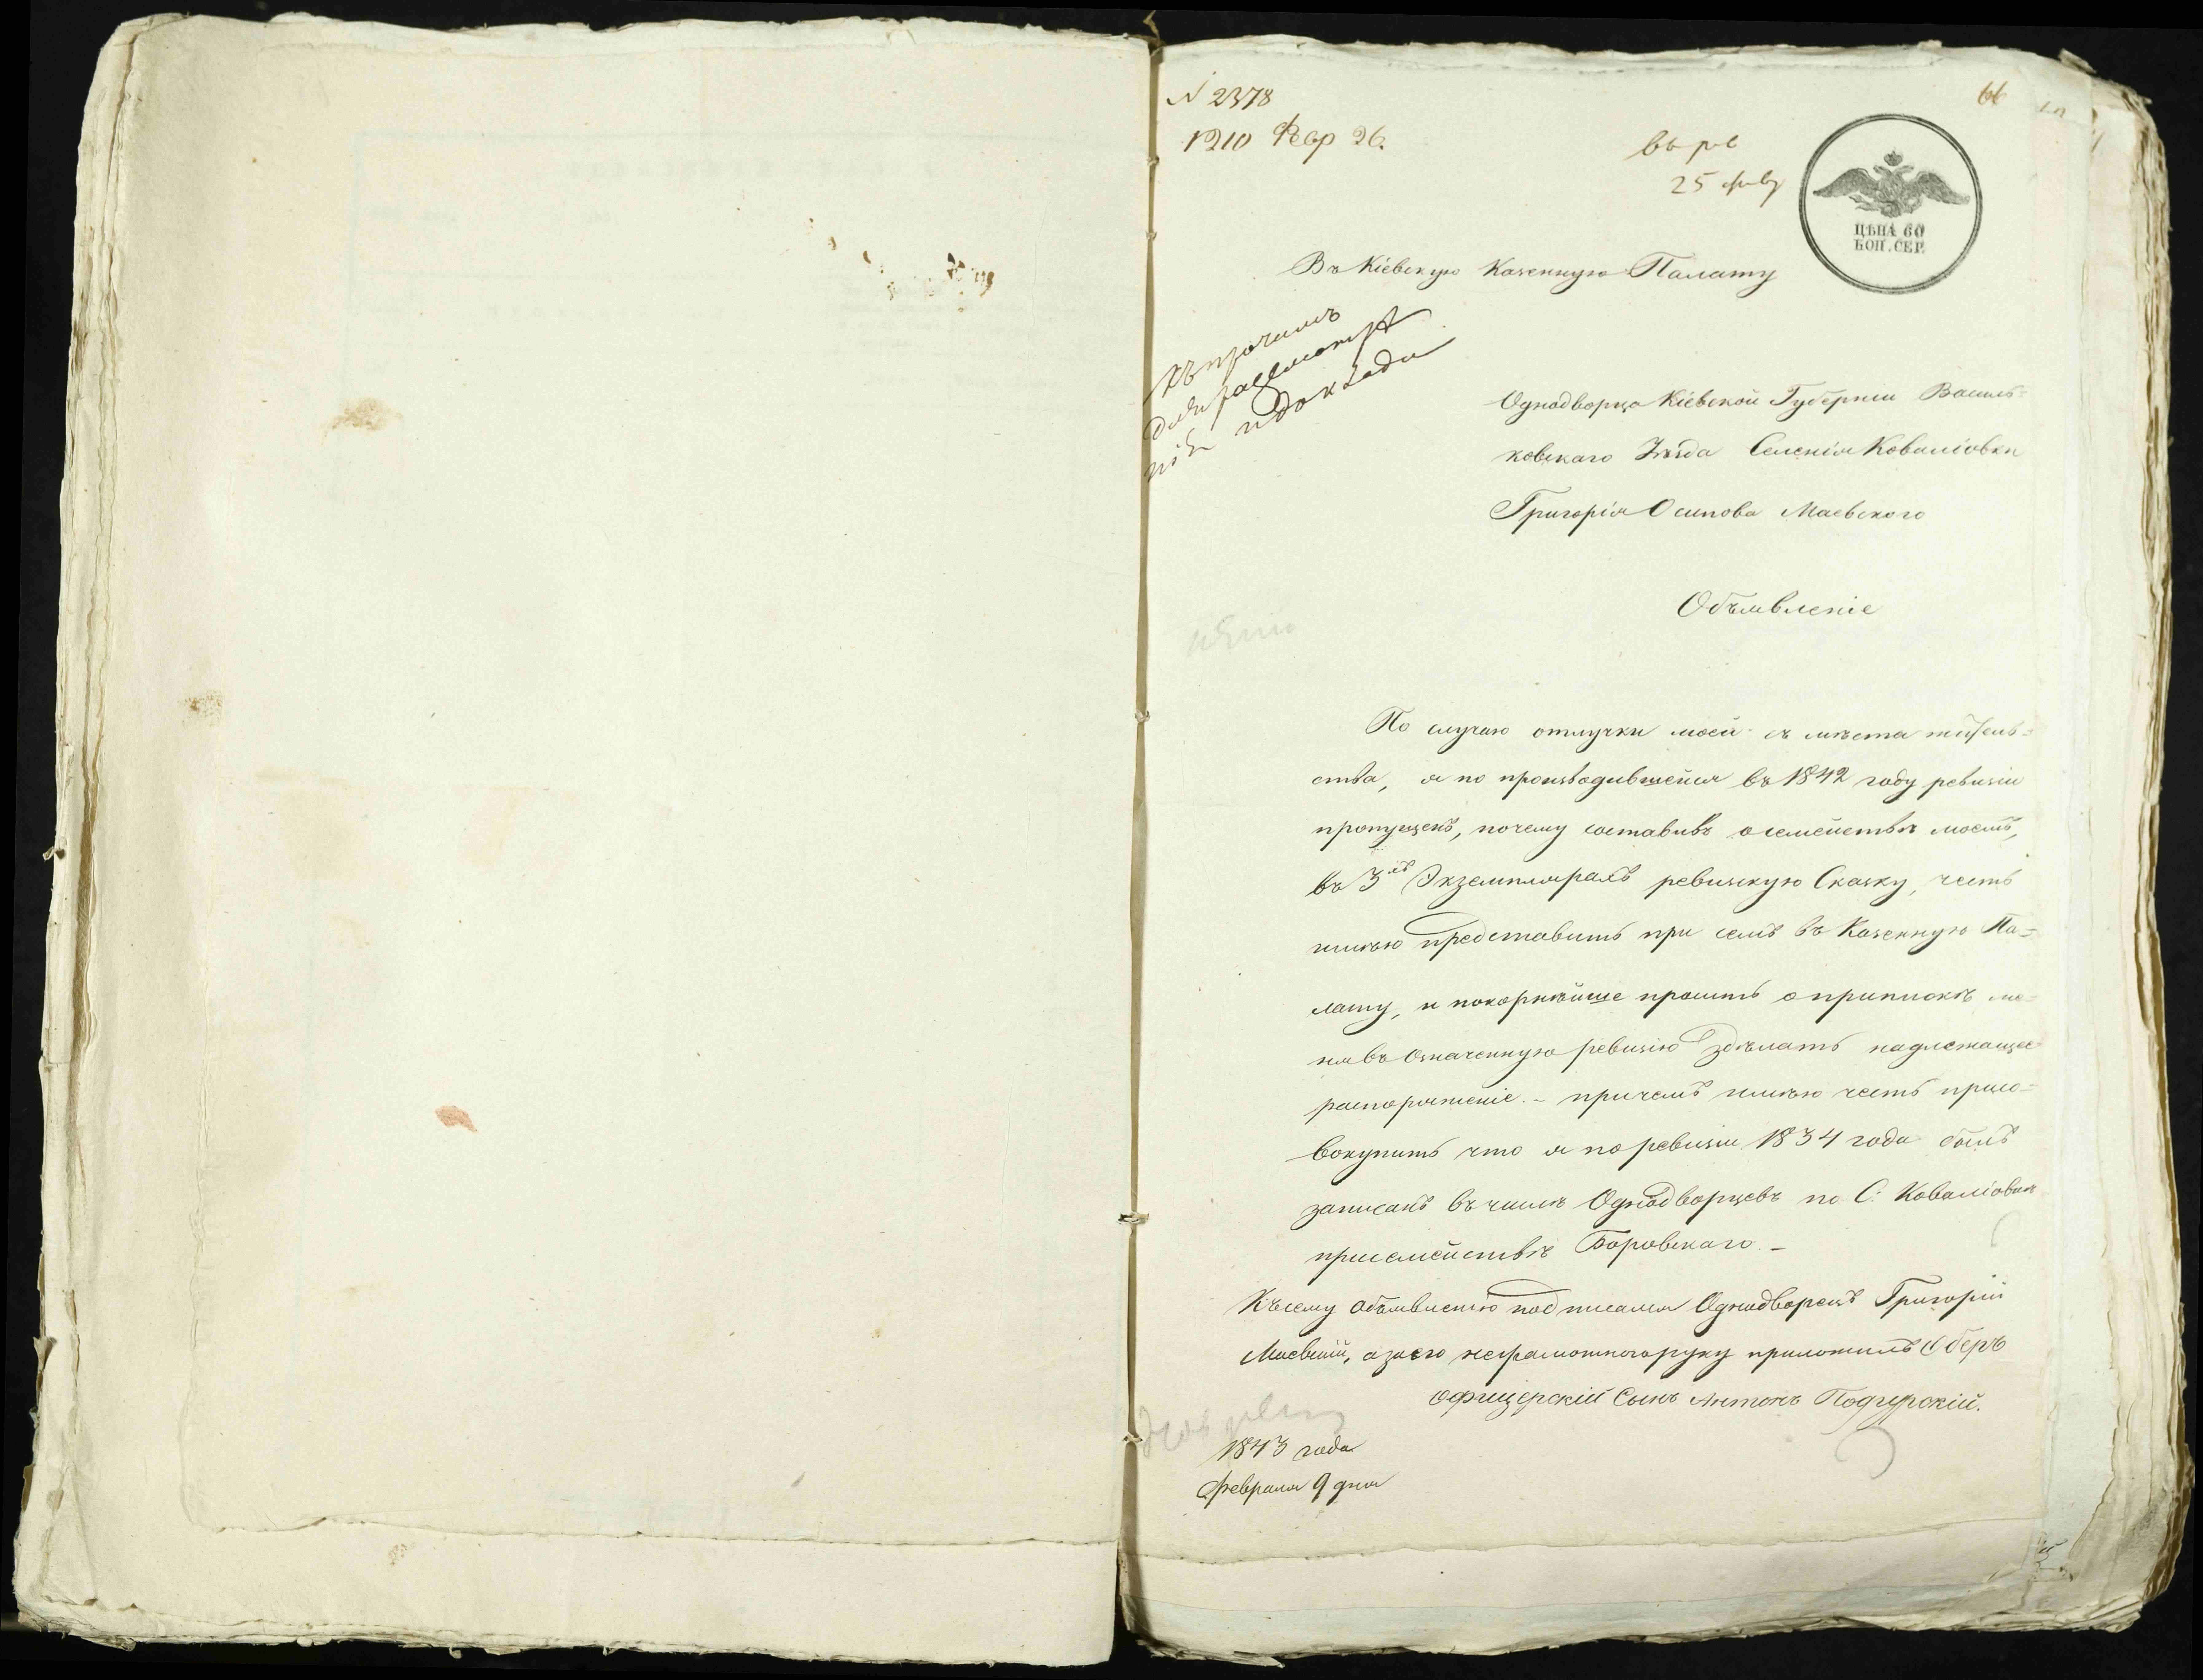 N 2378
1210 Февр 26.
66
25 февр
ЦѢНА 60
КОП. СЕР.
Въ Кіевскую Казенную Палату
Къ прочимъ
для разсмотрѣ
нія и доклада
Однодворца Кіевской Губерніи Василь=
ковскаго Уѣзда Селенія Ковалювки
Григорія Осипова Маевского
Объявленіе
По случаю отлучки моей съ мѣста житель=
ства, я по производившейся въ 1842 году ревизіи
пропущенъ, почему составивъ о семействѣ моемъ,
въ 3хъ Экземплярахъ ревизскую Сказку, честь
имѣю представить при семъ въ Казенную Па=
лату, и покорнѣйше просить о припискѣ ме=
ня въ Означенную ревизію здѣлать надлежащее
распоряженіе. - причемъ имѣю честь присо=
вокупить что я по ревизіи 1834 года былъ
записанъ въ числѣ Однодворцевъ по С: Ковалювкѣ
при семействѣ Боровскаго -
Къ сему объявленію подписался Однодворецъ Григорій
Маевскій, а за его неграмотного руку приложилъ Оберъ
офицерскій Сынъ Антонъ Подгурскій.
1843 года
Февраля 9 дня